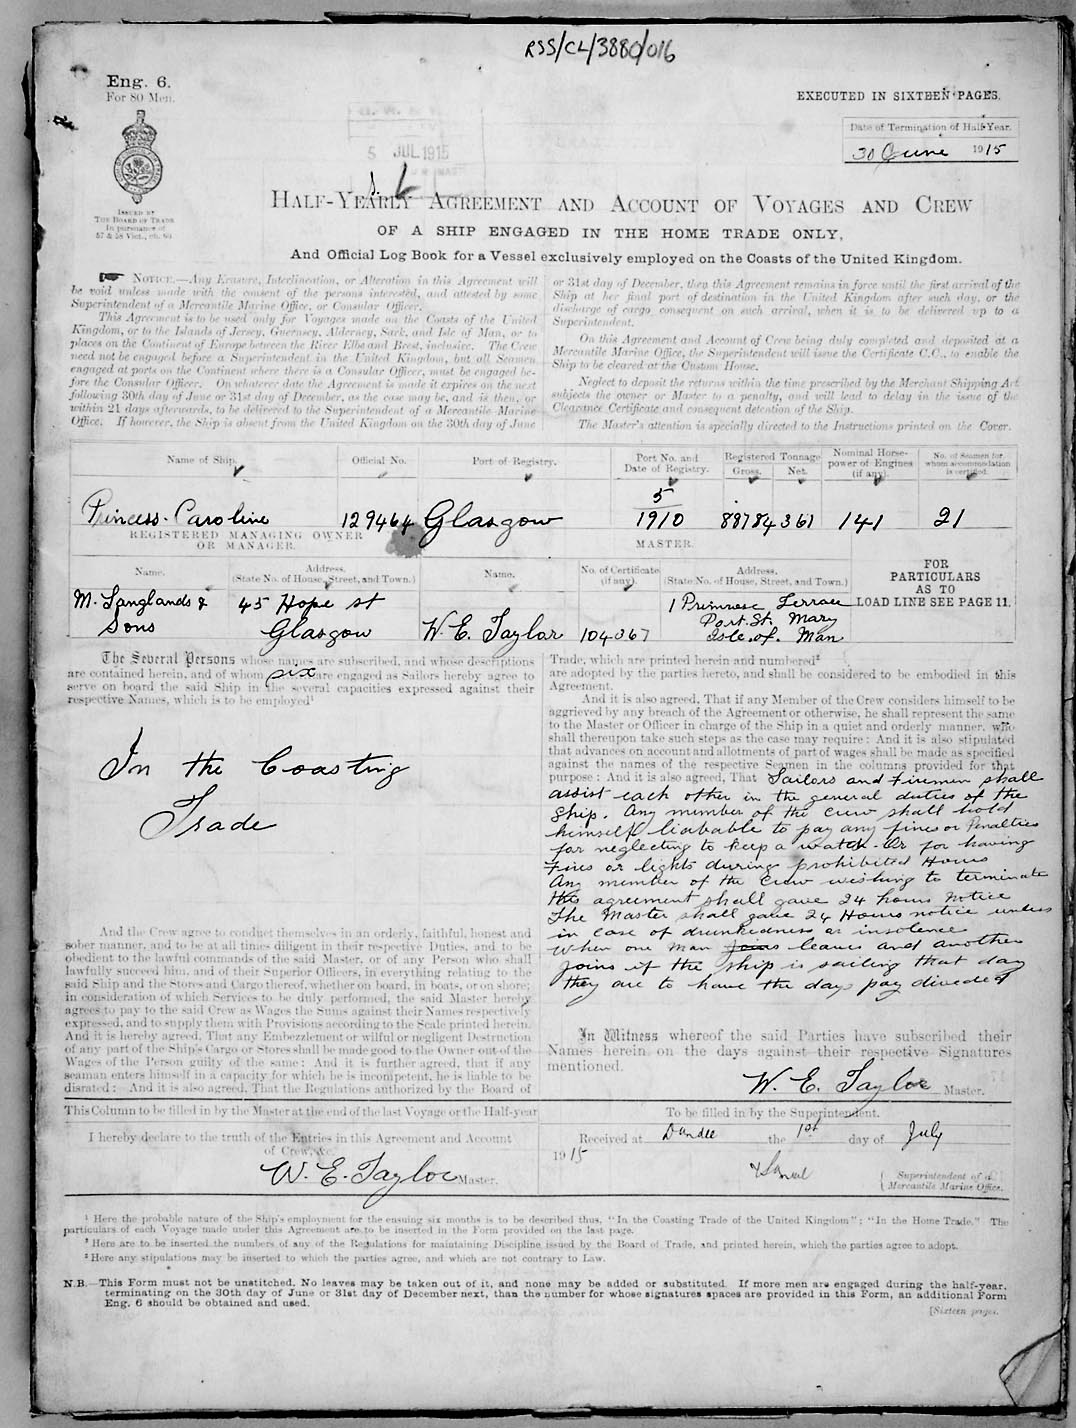 RSS/CL/3880/016
Eng. 6.
For 80 Men.
EXECUTED IN SIXTEEN PAGES.
Date of Termination of Half-Year.
30 June 1915
5 JUL 1915
ISSUED BY
THE BOARD OF TRADE
In pursuance of
57 & 58 Vict., ch. 60.
HALF-YEARLY AGREEMENT AND ACCOUNT OF VOYAGES AND CREW
OF A SHIP ENGAGED IN THE HOME TRADE ONLY,
And Official Log Book for a Vessel exclusively employed on the Coasts of the United Kingdom.
NOTICE.—Any Erasure, Interlineation, or Alteration in this Agreement will
be void unless made with the consent of the persons interested, and attested by some
Superintendent of a Mercantile Marine Office, or Consular Officer.
This Agreement is to be used only for Voyages made on the Coasts of the United
Kingdom, or to the Islands of Jersey, Guernsey, Alderney, Sark, and Isle of Man, or to
places on the Continent of Europe between the River Elbe and Brest, inclusive. The Crew
need not be engaged before a Superintendent in the United Kingdom, but all Seamen
engaged at ports on the Continent where there is a Consular Officer, must be engaged be-
fore the Consular Officer. On whatever date the Agreement is made it expires on the next
following 30th day of June or 31st day of December, as the case may be, and is then, or
within 21 days afterwards, to be delivered to the Superintendent of a Mercantile Marine
Office. If however, the Ship is absent from the United Kingdom on the 30th day of June
or 31st day of December, then this Agreement remains in force until the first arrival of the
Ship at her final port of destination in the United Kingdom after such day, or the
discharge of cargo consequent on such arrival, when it is to be delivered up to a
Superintendent.
On this Agreement and Account of Crew being duly completed and deposited at a
Mercantile Marine Office, the Superintendent will issue the Certificate C.C., to enable the
Ship to be cleared at the Custom House.
Neglect to deposit the returns within the time prescribed by the Merchant Shipping Act
subjects the owner or Master to a penalty, and will lead to delay in the issue of the
Clearance Certificate and consequent detention of the Ship.
The Master's attention is specially directed to the Instructions printed on the Cover.
Name of Ship. Official No. Port of Registry. Port No. and Date of Registry. Registered Tonnage Gross. Net. Nominal Horse-power of Engines (if any). No. of Seamen for whom accommodation is certified.
Princess Caroline 129464 Glasgow 5/1910 887 84 361 141 21
REGISTERED MANAGING OWNER
OR MANAGER.
MASTER.
Name. Address. (State No. of House, Street, and Town.) Name. No. of Certificate (if any). Address. (State No. of House, Street, and Town.)
FOR
PARTICULARS
AS TO
LOAD LINE SEE PAGE 11.
M. Langlands & Sons
45 Hope St
Glasgow
W. E. Taylor 104067
1 Primrose Terrace
Port St. Mary
Isle of Man
The Several Persons whose names are subscribed, and whose descriptions
are contained herein, and of whom six are engaged as Sailors hereby agree to
serve on board the said Ship in the several capacities expressed against their
respective Names, which is to be employed¹
In the Coasting
Trade
And the Crew agree to conduct themselves in an orderly, faithful, honest and
sober manner, and to be at all times diligent in their respective Duties, and to be
obedient to the lawful commands of the said Master, or of any Person who shall
lawfully succeed him, and of their Superior Officers, in everything relating to the
said Ship and the Stores and Cargo thereof, whether on board, in boats, or on shore;
in consideration of which Services to be duly performed, the said Master hereby
agrees to pay to the said Crew as Wages the Sums against their Names respectively
expressed, and to supply them with Provisions according to the Scale printed herein.
And it is hereby agreed, That any Embezzlement or wilful or negligent Destruction
of any part of the Ship's Cargo or Stores shall be made good to the Owner out of the
Wages of the Person guilty of the same: And it is further agreed, that if any
seaman enters himself in a capacity for which he is incompetent, he is liable to be
disrated: And it is also agreed, That the Regulations authorized by the Board of
Trade, which are printed herein and numbered²
are adopted by the parties hereto, and shall be considered to be embodied in this
Agreement.
And it is also agreed, That if any Member of the Crew considers himself to be
aggrieved by any breach of the Agreement or otherwise, he shall represent the same
to the Master or Officer in charge of the Ship in a quiet and orderly manner, who
shall thereupon take such steps as the case may require: And it is also stipulated
that advances on account and allotments of part of wages shall be made as specified
against the names of the respective Seamen in the columns provided for that
purpose: And it is also agreed, That Sailors and Firemen shall
assist each other in the general duties of the
Ship. Any member of the crew shall hold
himself liabable to pay any fines or Penalties
for neglecting to keep a watch. Or for having
Fires or lights during prohibited Hours
Any member of the crew wishing to terminate
this agreement shall gave 24 hours Notice
The Master shall gave 24 Hours notice unless
in case of drunkedness or insolence
When one man joins leaves and another
joins if the ship is sailing that day
they are to have the days pay divided
In Witness whereof the said Parties have subscribed their
Names herein on the days against their respective Signatures
mentioned.
W. E. Taylor Master.
This Column to be filled in by the Master at the end of the last Voyage or the Half-year
I hereby declare to the truth of the Entries in this Agreement and Account
of Crew, &c.
W. E. Taylor Master.
To be filled in by the Superintendent.
Received at Dundee the 1st day of July
1915
Superintendent of a
Mercantile Marine Office.
¹ Here the probable nature of the Ship's employment for the ensuing six months is to be described thus, "In the Coasting Trade of the United Kingdom"; "In the Home Trade." The
particulars of each Voyage made under this Agreement are to be inserted in the Form provided on the last page.
² Here are to be inserted the numbers of any of the Regulations for maintaining Discipline issued by the Board of Trade, and printed herein, which the parties agree to adopt.
³ Here any stipulations may be inserted to which the parties agree, and which are not contrary to Law.
N.B.—This Form must not be unstitched. No leaves may be taken out of it, and none may be added or substituted. If more men are engaged during the half-year,
terminating on the 30th day of June or 31st day of December next, than the number for whose signatures spaces are provided in this Form, an additional Form
Eng. 6 should be obtained and used.
[Sixteen pages.